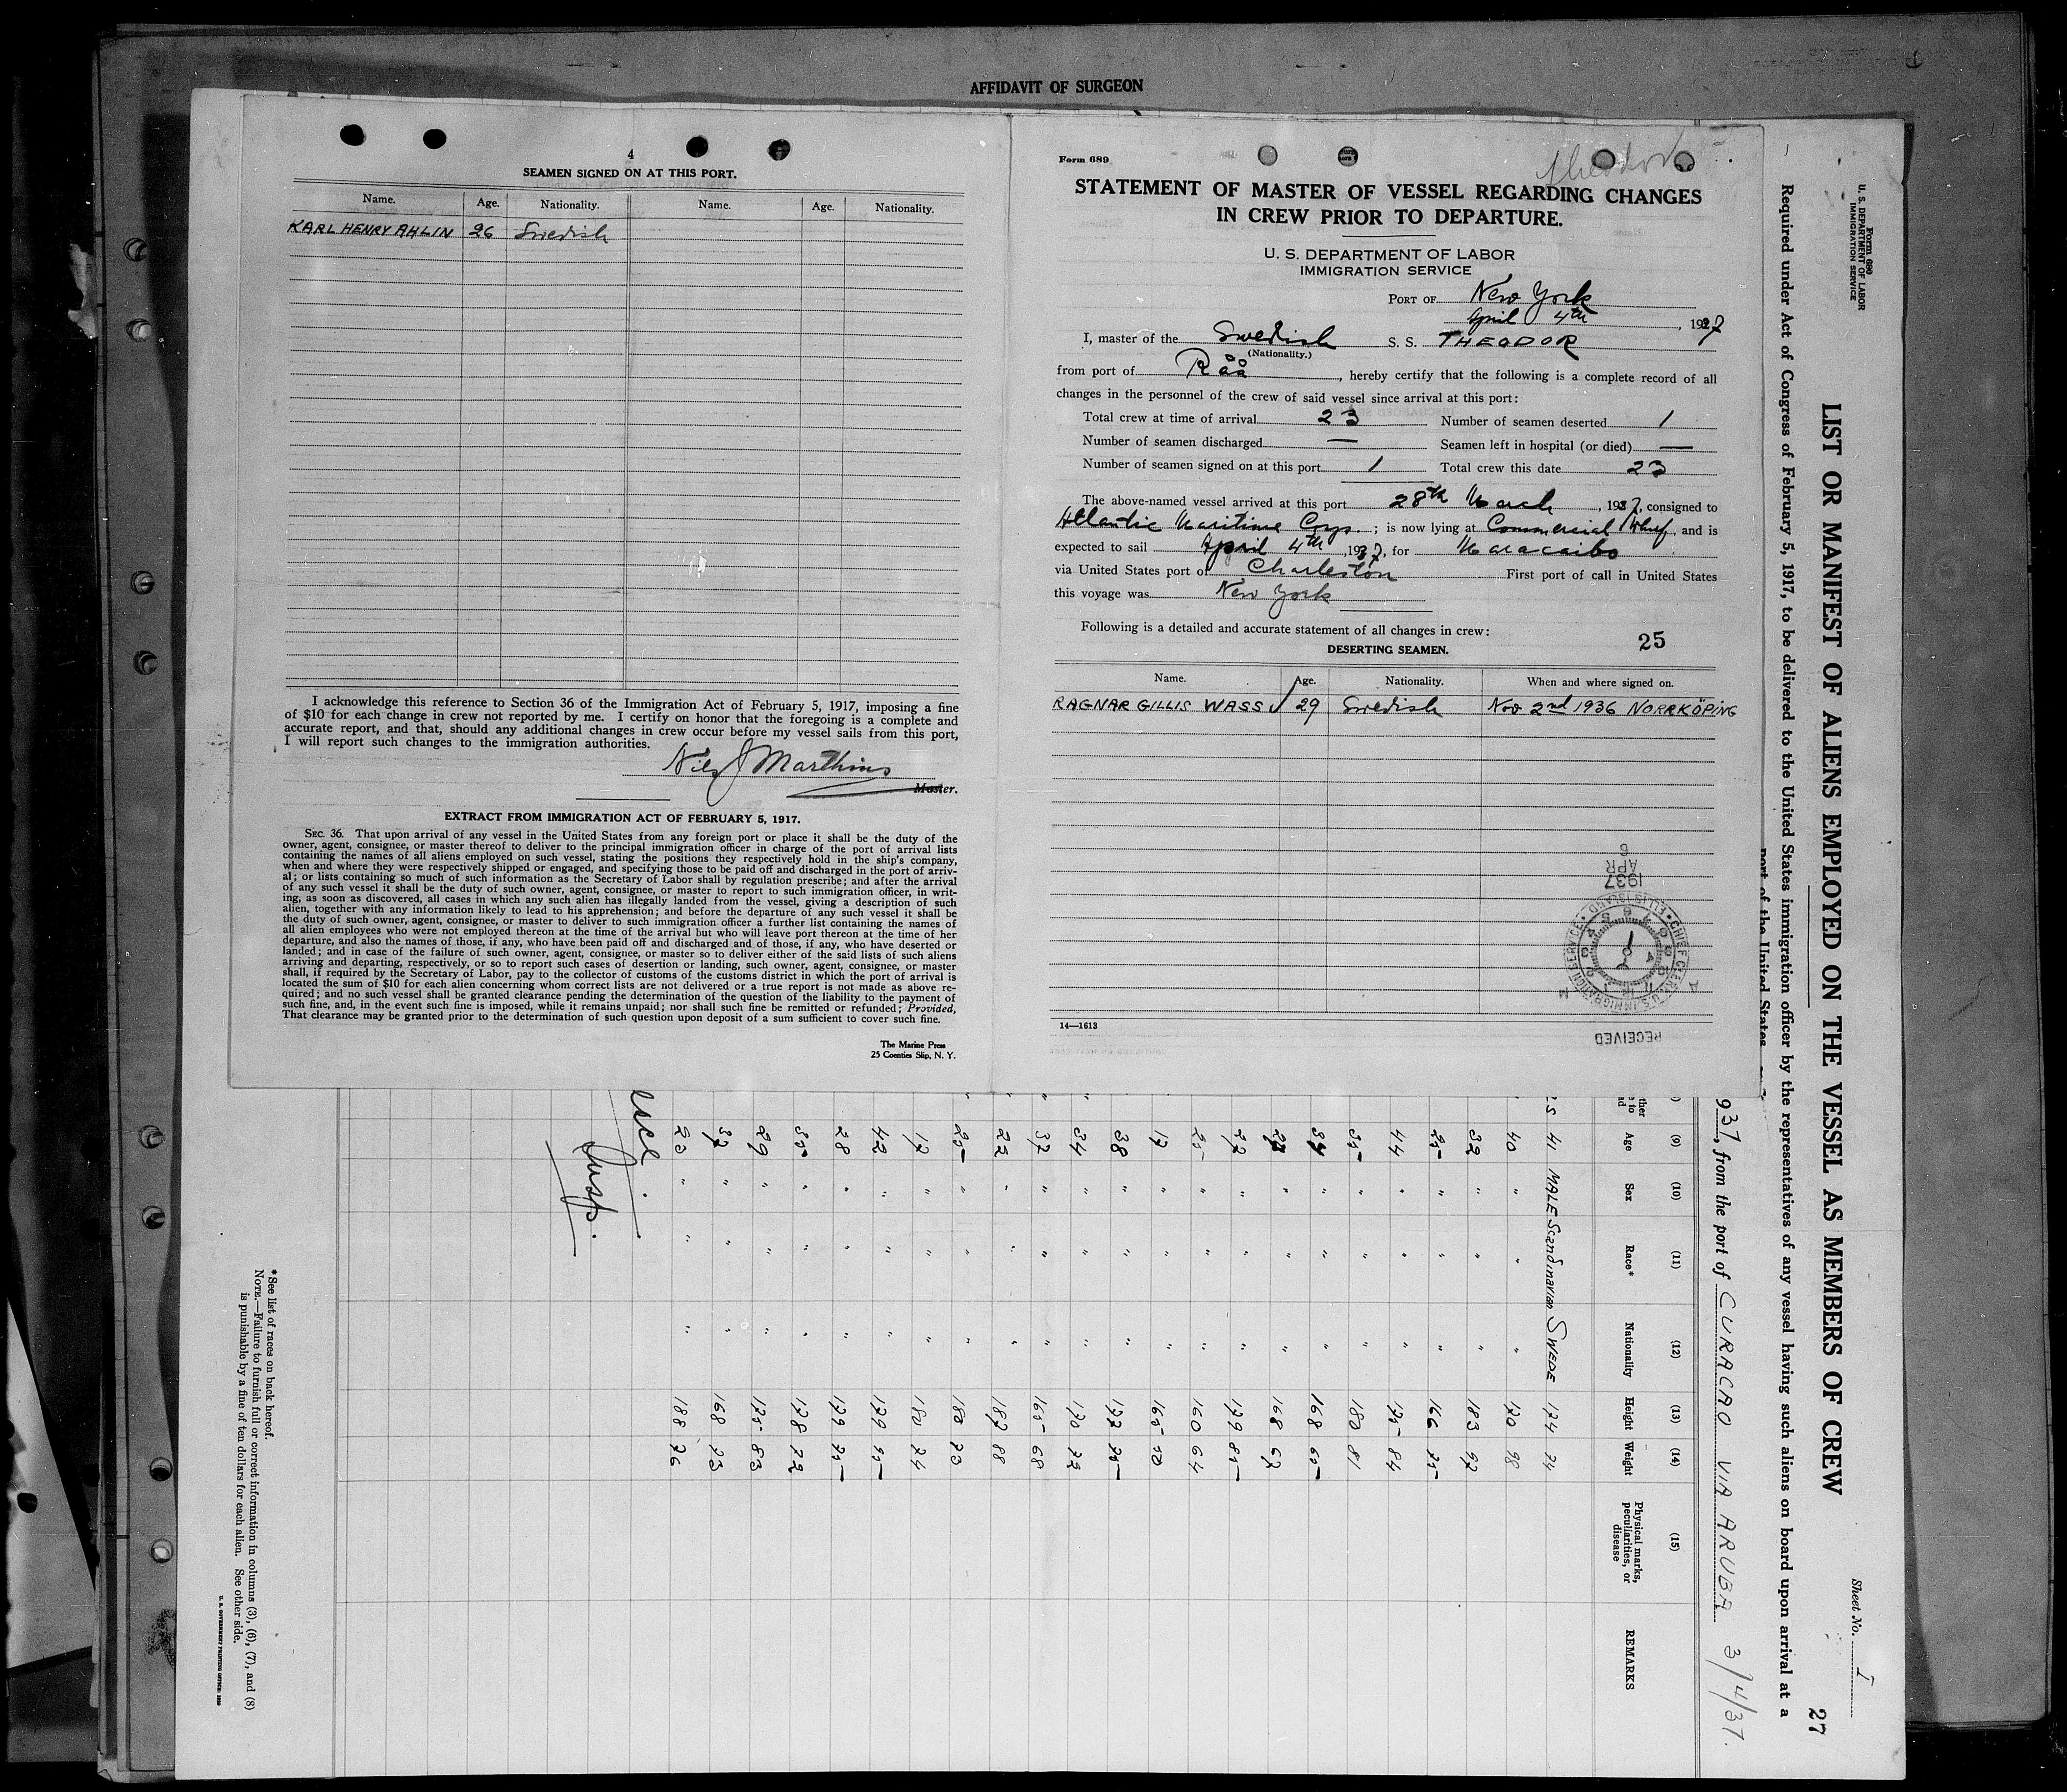 AFFIDAVIT OF SURGEON
4
SEAMEN SIGNED ON AT THIS PORT.
Name. Age. Nationality. Name. Age. Nationality.
KARL HENRY AHLIN 26 Swedish
I acknowledge this reference to Section 36 of the Immigration Act of February 5, 1917, imposing a fine
of $10 for each change in crew not reported by me. I certify on honor that the foregoing is a complete and
accurate report, and that, should any additional changes in crew occur before my vessel sails from this port,
I will report such changes to the immigration authorities.
Nils J Marthins
Master.
EXTRACT FROM IMMIGRATION ACT OF FEBRUARY 5, 1917.
SEC. 36. That upon arrival of any vessel in the United States from any foreign port or place it shall be the duty of the
owner, agent, consignee, or master thereof to deliver to the principal immigration officer in charge of the port of arrival lists
containing the names of all aliens employed on such vessel, stating the positions they respectively hold in the ship's company,
when and where they were respectively shipped or engaged, and specifying those to be paid off and discharged in the port of arriv-
al; or lists containing so much of such information as the Secretary of Labor shall by regulation prescribe; and after the arrival
of any such vessel it shall be the duty of such owner, agent, consignee, or master to report to such immigration officer, in writ-
ing, as soon as discovered, all cases in which any such alien has illegally landed from the vessel, giving a description of such
alien, together with any information likely to lead to his apprehension; and before the departure of any such vessel it shall be
the duty of such owner, agent, consignee, or master to deliver to such immigration officer a further list containing the names of
all alien employees who were not employed thereon at the time of the arrival but who will leave port thereon at the time of her
departure, and also the names of those, if any, who have been paid off and discharged and of those, if any, who have deserted or
landed; and in case of the failure of such owner, agent, consignee, or master so to deliver either of the said lists of such aliens
arriving and departing, respectively, or so to report such cases of desertion or landing, such owner, agent, consignee, or master
shall, if required by the Secretary of Labor, pay to the collector of customs of the customs district in which the port of arrival is
located the sum of $10 for each alien concerning whom correct lists are not delivered or a true report is not made as above re-
quired; and no such vessel shall be granted clearance pending the determination of the question of the liability to the payment of
such fine, and, in the event such fine is imposed, while it remains unpaid; nor shall such fine be remitted or refunded; Provided,
That clearance may be granted prior to the determination of such question upon deposit of a sum sufficient to cover such fine.
The Marine Press
25 Coenties Slip, N. Y.
Form 689
Theodor
STATEMENT OF MASTER OF VESSEL REGARDING CHANGES
IN CREW PRIOR TO DEPARTURE.
U. S. DEPARTMENT OF LABOR
IMMIGRATION SERVICE
PORT OF New York
April 4th, 1937
I, master of the Swedish S. S. THEODOR
(Nationality.)
from port of Råå, hereby certify that the following is a complete record of all
changes in the personnel of the crew of said vessel since arrival at this port:
Total crew at time of arrival 23 Number of seamen deserted 1
Number of seamen discharged — Seamen left in hospital (or died) —
Number of seamen signed on at this port 1 Total crew this date 23
The above-named vessel arrived at this port 28th March, 1937, consigned to
Atlantic Maritime Corp.; is now lying at Commercial Wharf, and is
expected to sail April 4th, 1937, for Maracaibo
via United States port of Charleston First port of call in United States
this voyage was New York
Following is a detailed and accurate statement of all changes in crew:
25
DESERTING SEAMEN.
Name. Age. Nationality. When and where signed on.
RAGNAR GILLIS WASS 29 Swedish Nov 2nd 1936 NORRKÖPING
14—1613
RECEIVED
CHIEF CLERK, U.S. IMMIGRATION SERVICE
ELLIS ISLAND
A M
1937 APR 6
Form 680
U. S. DEPARTMENT OF LABOR
IMMIGRATION SERVICE
Sheet No. I
27
LIST OR MANIFEST OF ALIENS EMPLOYED ON THE VESSEL AS MEMBERS OF CREW
Required under Act of Congress of February 5, 1917, to be delivered to the United States immigration officer by the representatives of any vessel having such aliens on board upon arrival at a
port of the United States
937, from the port of CURACAO VIA ARUBA 3/4/37.
(9) (10) (11) (12) (13) (14) (15)
Age Sex Race* Nationality Height Weight Physical marks, peculiarities, or disease REMARKS
41 MALE Scandinavian SWEDE 174 74
40 " " " 170 98
32 " " " 183 97
25 " " " 166 75
44 " " " 175 84
35 " " " 180 81
" " " 168 65
" " " 168 67
27 " " " 179 85
25 " " " 160 64
17 " " " 165 70
38 " " " 177 75
34 " " " 170 73
37 " " " 165 68
22 " " " 187 88
25 " " " 180 73
17 " " " 180 74
42 " " " 179 95
28 " " " 179 75
35 " " " 178 72
29 " " " 175 83
37 " " " 168 73
23 " " " 188 76
Insp.
*See list of races on back hereof.
NOTE.—Failure to furnish full or correct information in columns (3), (6), (7), and (8)
is punishable by a fine of ten dollars for each alien. See other side.
U. S. GOVERNMENT PRINTING OFFICE